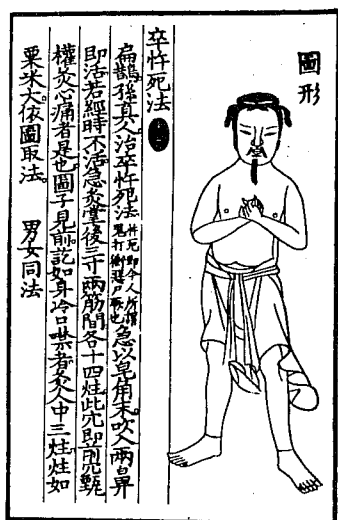 圖形
卒忤死法
扁鵲孫真人治卒忤死法忤死即今人所謂鬼打衝惡尸厥也急以皂角末吹入兩鼻
即活若經時不活急灸掌後三寸兩筋間各十四炷此穴即前穴甄
權灸心痛者是也圖子見前訖如身冷口噤者灸人中三炷炷如
粟米大依圖取法　男女同法